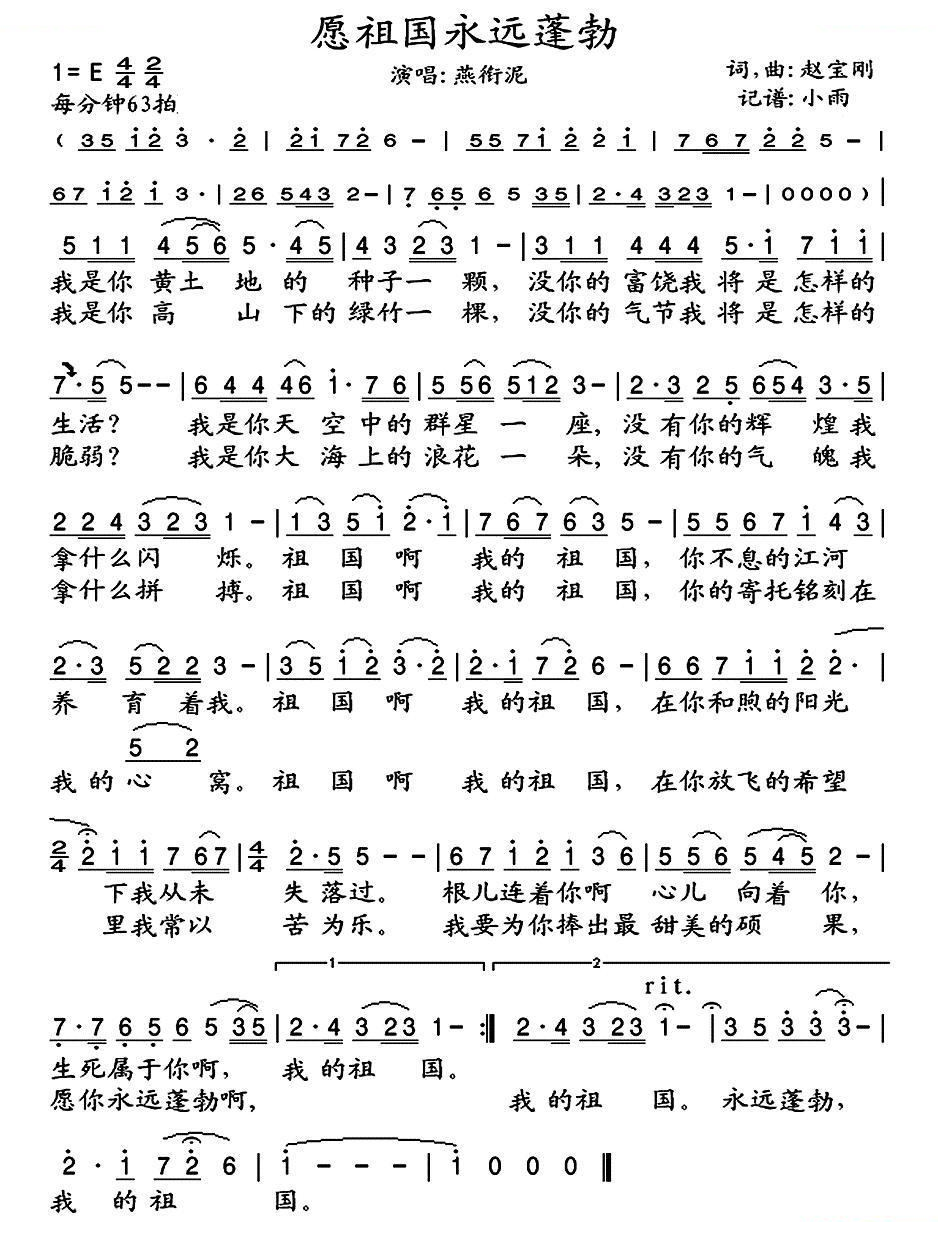 愿祖国永远蓬勃
1=E 4/4 2/4
演唱:燕衔泥
词,曲:赵宝刚
每分钟63拍
记谱:小雨
( 35 i2 3 · 2 | 2i 72 6 - | 55 7i 2 2 i | 7 6 7 2 2 5 - |
67 i2 i 3 · | 26 543 2 - | 7 65 6 5 35 | 2 · 4 323 1 - | 0000 ) |
5 1 1 4 5 6 5 · 4 5 | 4 3 2 3 1 - | 3 1 1 4 4 4 5 · i 7 i i |
我是你 黄土 地 的 种子一 颗, 没你的 富饶我 将 是 怎样的
我是你 高 山 下的 绿竹一 棵, 没你的 气节我 将 是 怎样的
7 · 5 5 - - | 6 4 4 4 6 i · 7 6 | 5 5 6 5 1 2 3 - | 2 · 3 2 5 6 5 4 3 · 5 |
生活? 我是你天 空 中的 群星 一 座, 没 有你的辉 煌 我
脆弱? 我是你大 海 上的 浪花 一 朵, 没 有你的气 魄 我
2 2 4 3 2 3 1 - | 1 3 5 i 2 · i | 7 6 7 6 3 5 - | 5 5 6 7 i 4 3 |
拿什么闪 烁。 祖 国 啊 我的 祖 国, 你不息的江河
拿什么拼 搏。 祖 国 啊 我的 祖 国, 你的寄托铭刻在
2 · 3 5 2 2 3 - | 3 5 i 2 3 · 2 | 2 · i 7 2 6 - | 6 6 7 i i 2 2 · |
养 育 着我。 祖 国 啊 我 的祖 国, 在你和煦的阳光
5 2
我 的 心 窝。 祖 国 啊 我 的祖 国, 在你放飞的希望
2/4 2 i i 7 6 7 | 4/4 2 · 5 5 - - | 6 7 i 2 i 3 6 | 5 5 6 5 4 5 2 - |
下我从未 失 落过。 根儿连着你啊 心儿 向着 你,
里我常以 苦 为乐。 我要为你捧出最 甜美的硕 果,
1 2
rit.
7 · 7 6 5 6 5 3 5 | 2 · 4 3 2 3 1 - :‖ 2 · 4 3 2 3 1 - | 3 5 3 3 3 - |
生死属于你啊, 我 的祖 国。
愿你永远蓬勃啊, 我 的祖 国。 永远蓬勃,
2 · i 7 2 6 | i - - - | i 0 0 0 ‖
我 的 祖 国。